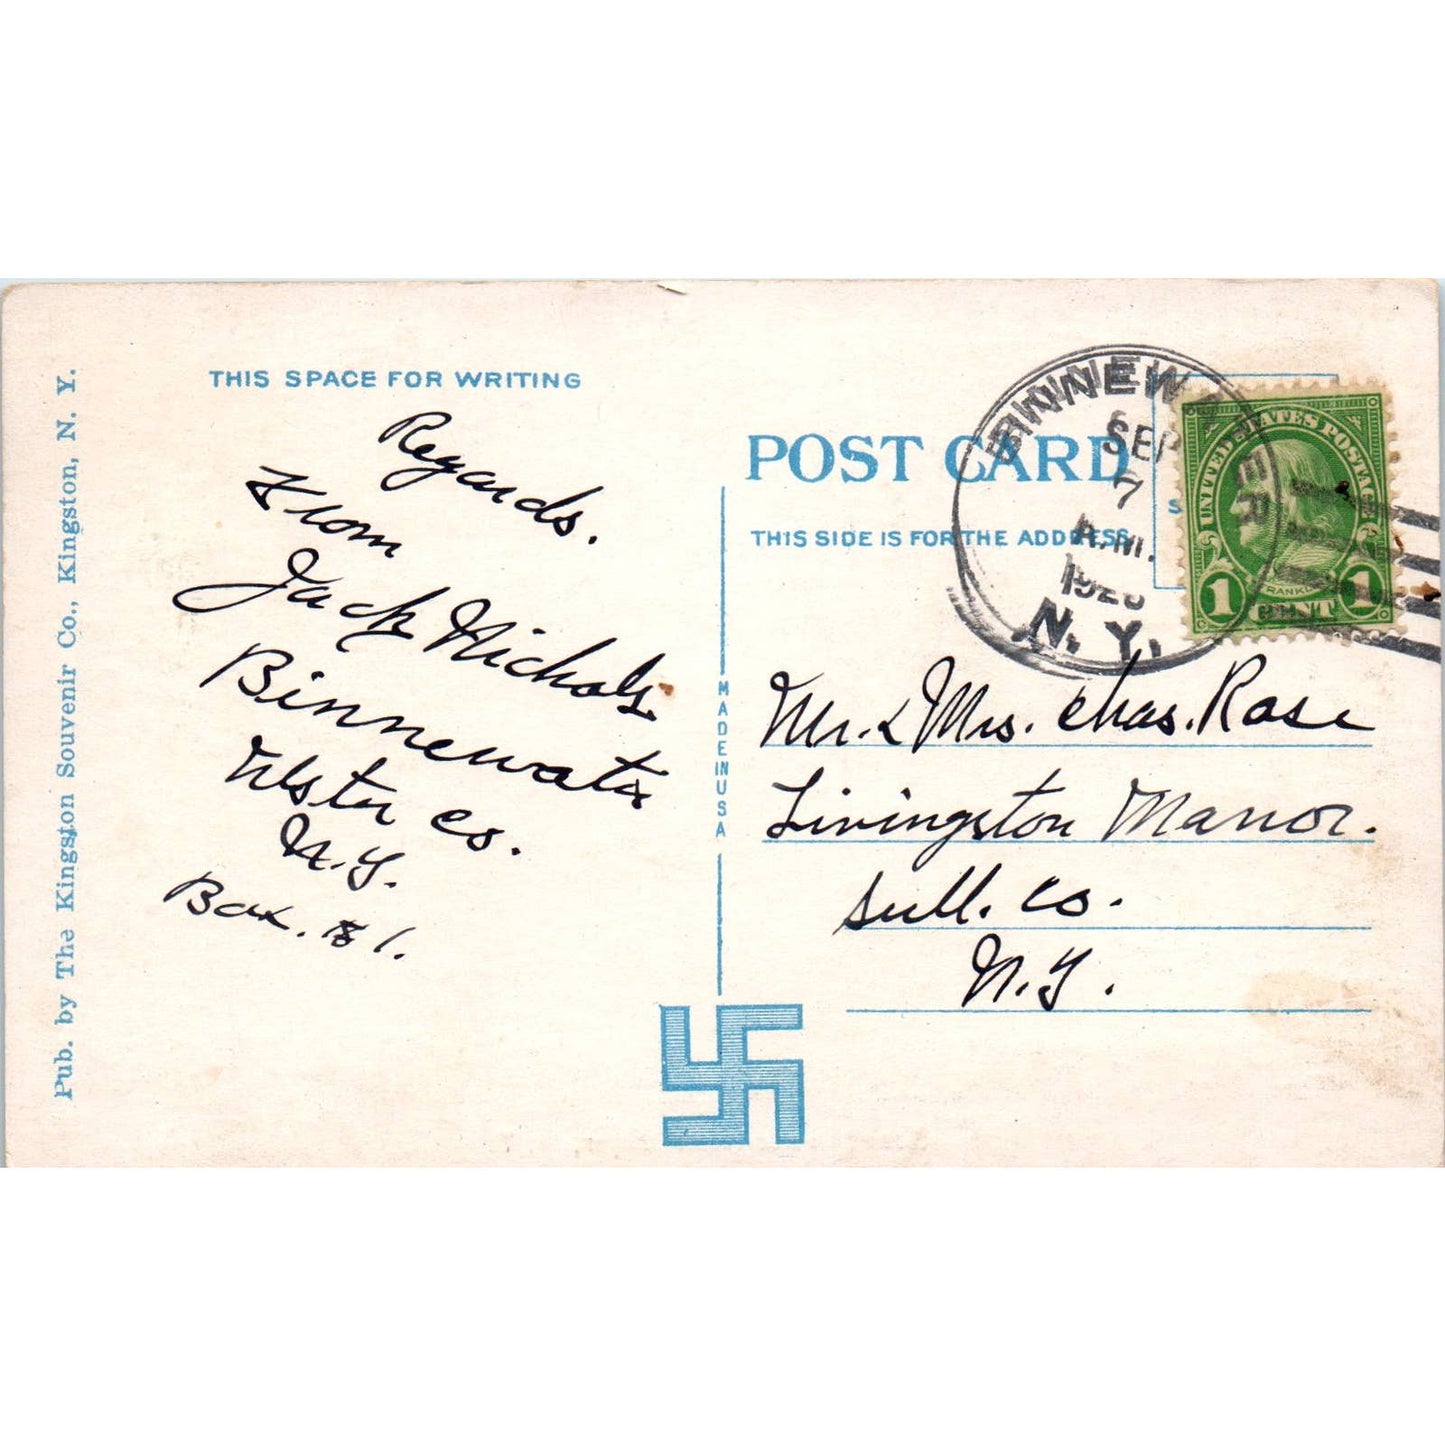 Pub. by The Kingston Souvenir Co., Kingston, N. Y.
THIS SPACE FOR WRITING
Regards.
From
Jack Nichols.
Binnewater
Ulster Co.
N.Y.
Box. 81.
MADE IN USA
POST CARD
THIS SIDE IS FOR THE ADDRESS
BINNEWATER
SEP
7
A.M.
N. Y.
UNITED STATES POSTAGE
FRANKLIN
1 CENT 1
Mr. & Mrs. Chas. Rose
Livingston Manor.
Sull. Co.
N.Y.